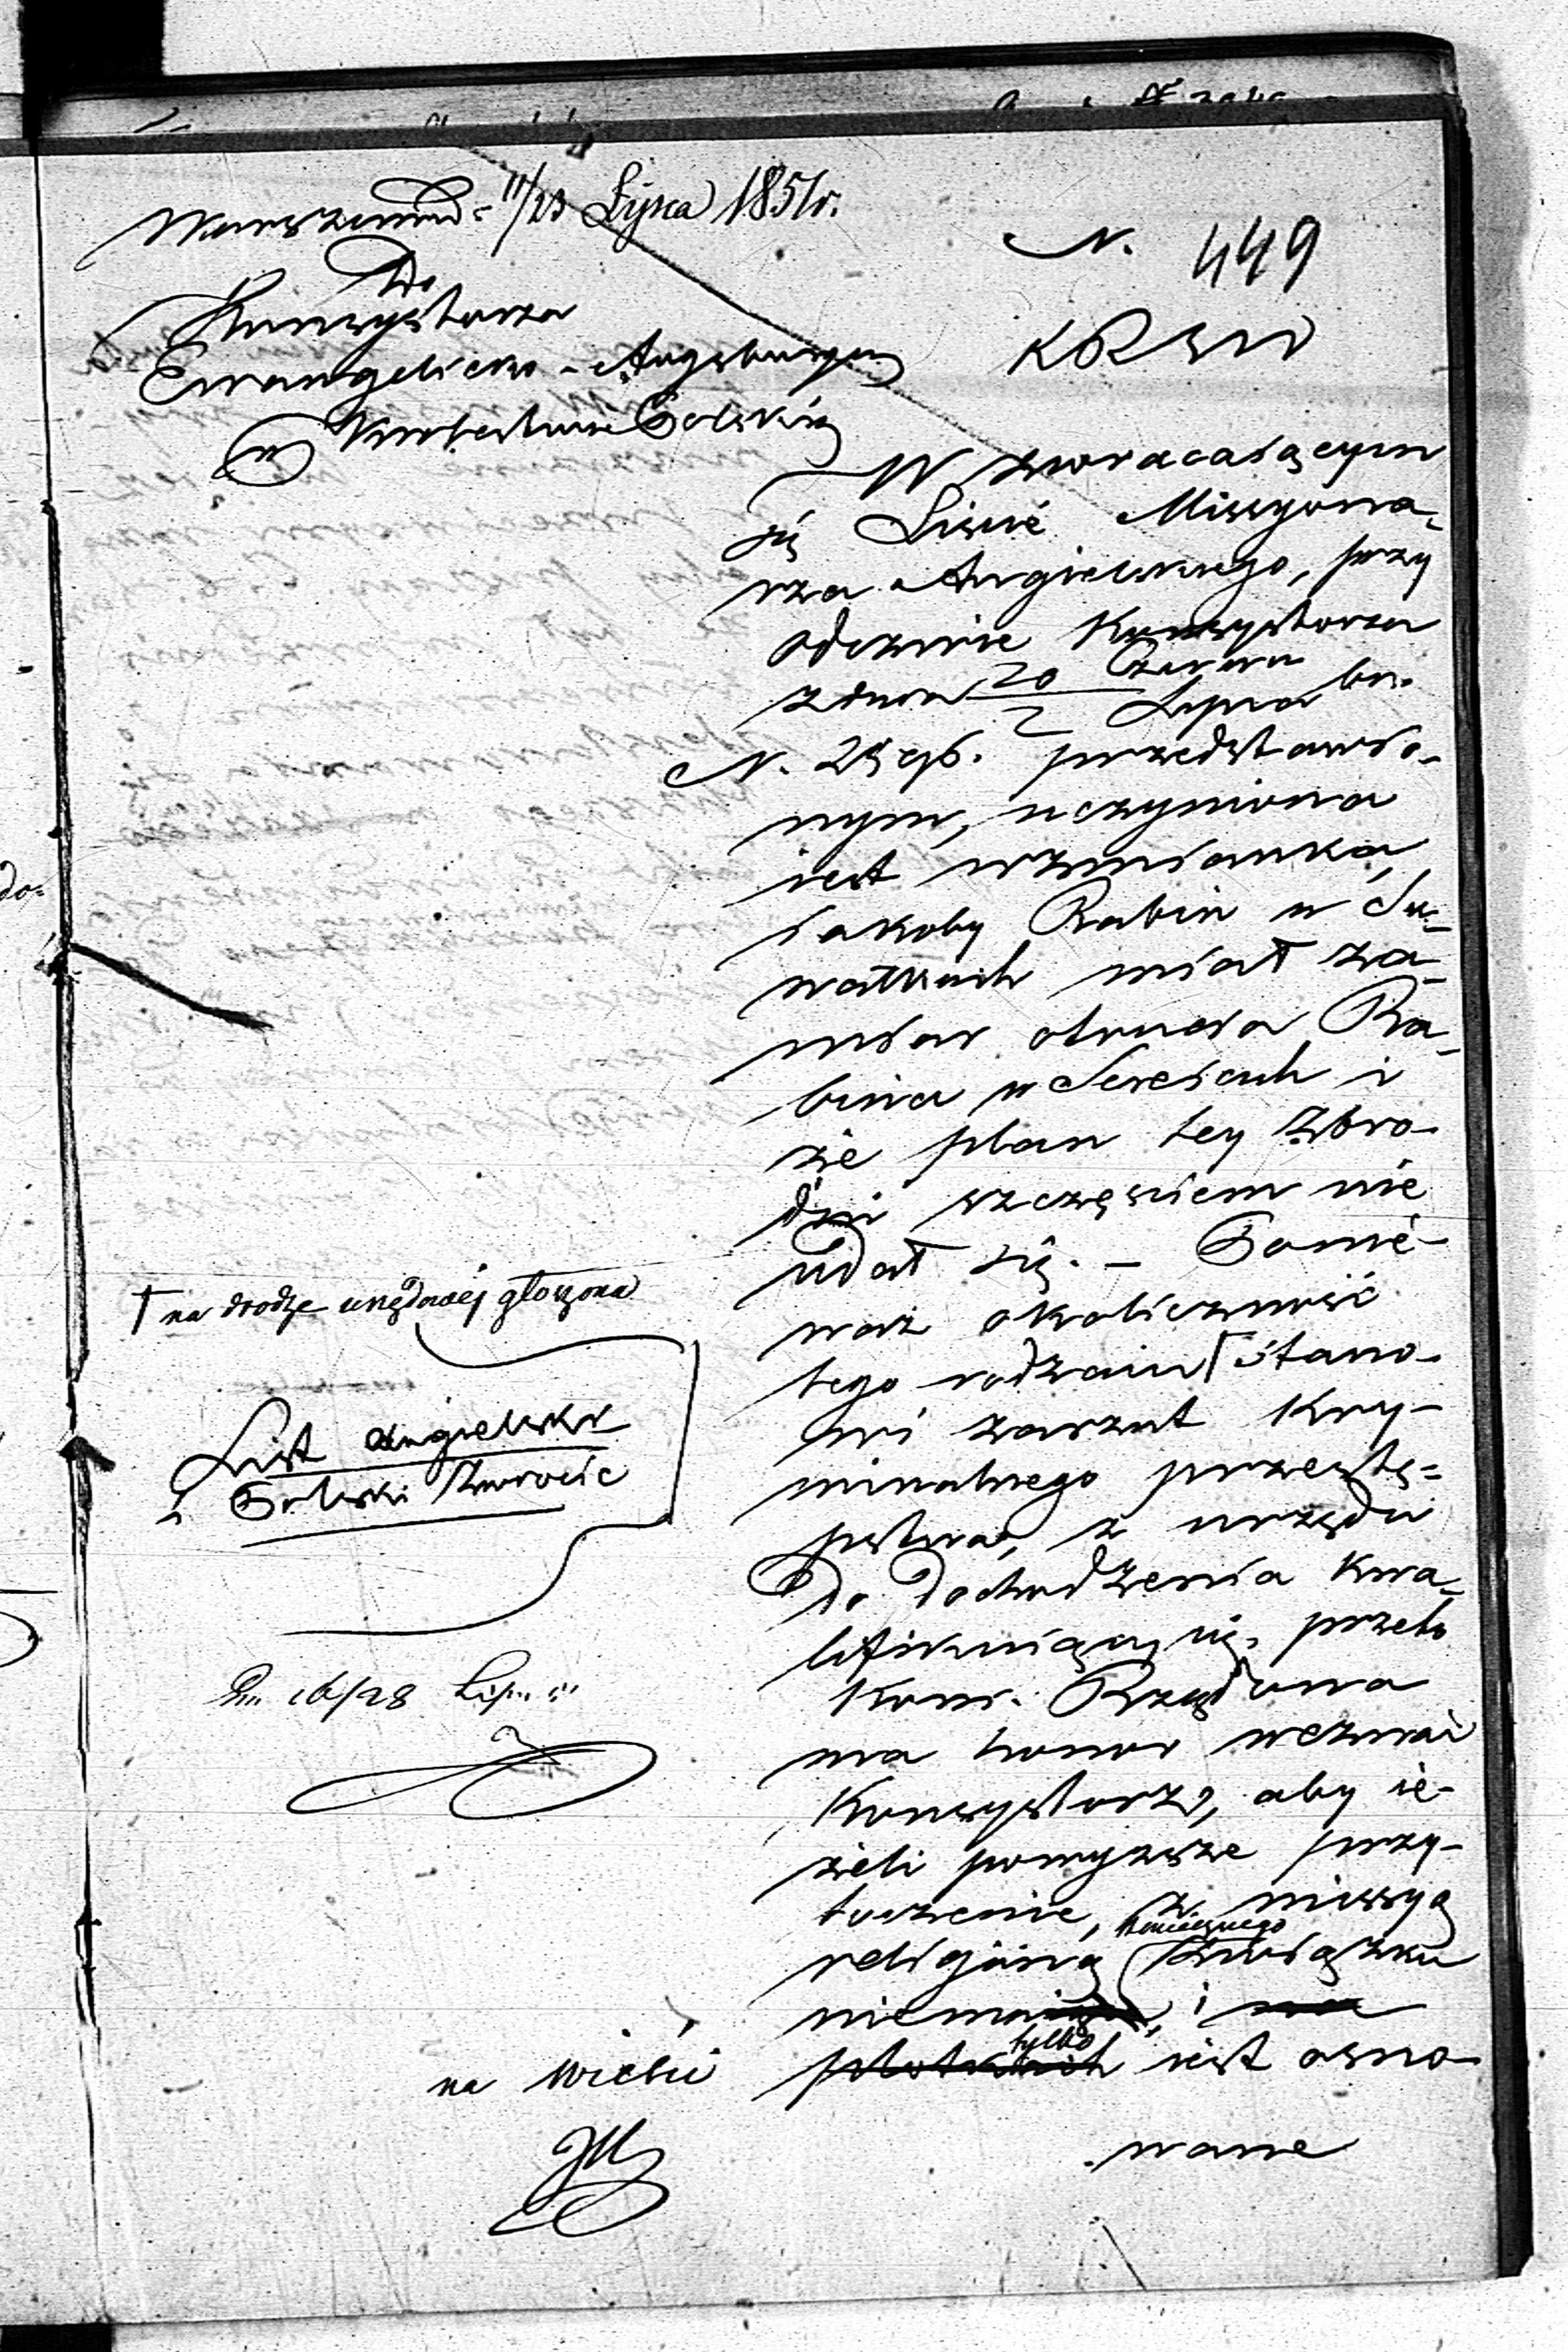 Warszawa d. 11/23 Lipca 1851 r.
N. 449
Do
Konsystorza
Ewangelicko-Augsburgu
w Królestwie Polskim
KRSW
W zwracaiącym
się Liście Missyona-
rza Angielskiego, przy
odezwie Konsystorza
z dnia 20 Czerwca / 2 Lipca br.
N. 2596. przedstawio-
nym, uczyniona
iest wzmianka,
iakoby Rabin w Su-
wałkach miał za-
miar otrucia Ra-
bina w Sereiach i
że plan tey zbro-
dni szczęściem nie
udał się. – Ponie-
waż okoliczność
tego rodzaiu Ꞁ stano-
wi zarzut kry-
minalnego przestę-
pstwa, z urzędu
do dochodzenia kwa-
lifikuiący się, przeto
Kom. Rządowa
ma honor wezwać
Konsystorz, aby ie-
żeli powyższe przy-
toczenie, z missyą
koniecznego
religiiną związku
niema, i na
tylko
plotkach iest osno-
wane
Ꞁ na drodze urzędowej głoszona
List angielski
i Polski zwrócić
Dn 16/28 Lipca
na wieści